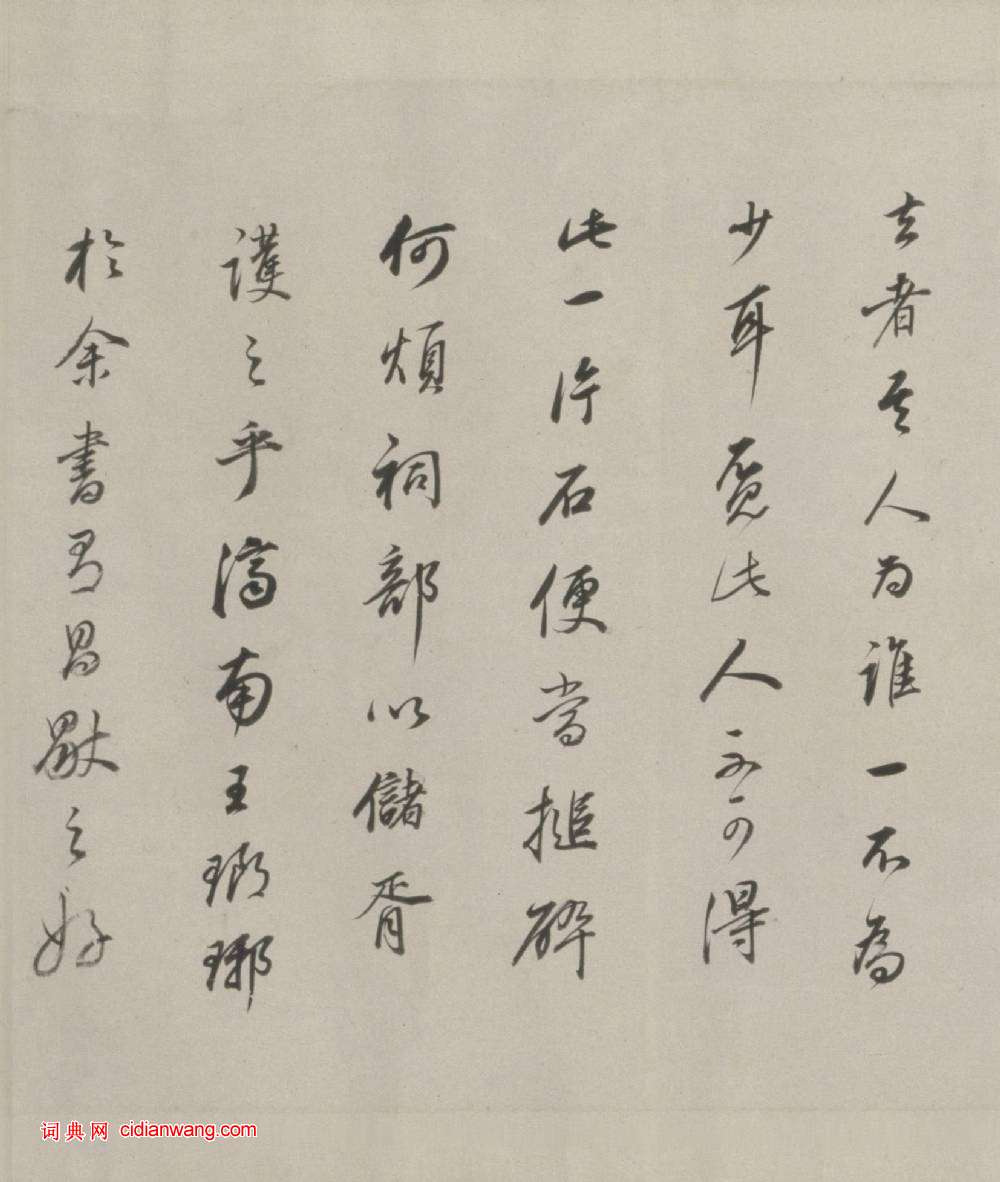 去者其人为谁一不為
少耳覔此人不可得
此一片石便當搥碎
何煩祠部以儲胥
護之乎濟南王瑯琊
於余書有昌歜之好
词典网 cidianwang.com